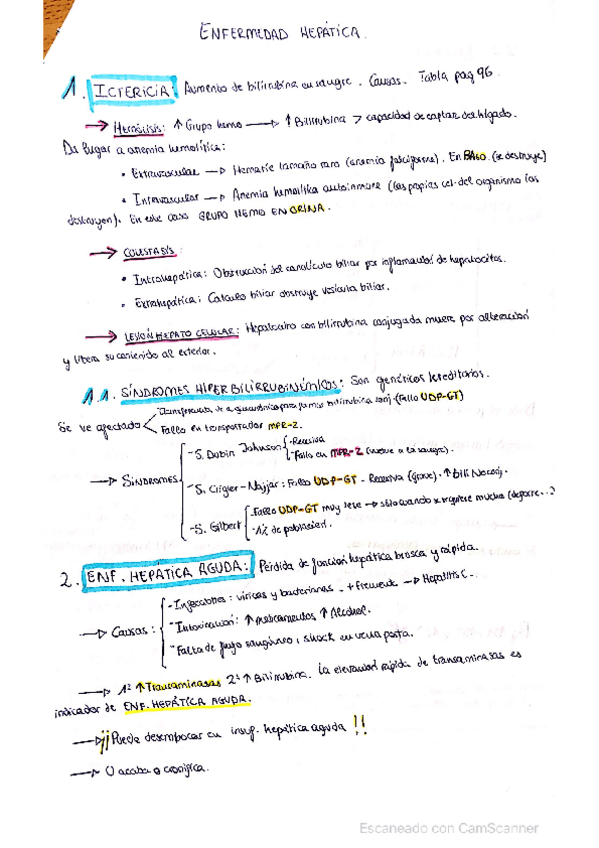 ENFERMEDAD HEPÁTICA.
1. ICTERICIA: Aumento de bilirrubina en sangre. Causas. Tabla pag 96.
→ Hemólisis: ↑ Grupo hemo → ↑ Bilirrubina > capacidad de captar del hígado.
Da lugar a anemia hemolítica:
• Extravascular → Hematíe tamaño raro (anemia falciforme). En BAZO. (se destruye)
• Intravascular → Anemia hemolítica autoinmune (las propias cel. del organismo las
destruyen). En este caso GRUPO HEMO EN ORINA.
→ COLESTASIS:
• Intrahepática: Obstrucción del canalículo biliar por inflamación de hepatocitos.
• Extrahepática: Calculo biliar obstruye vesícula biliar.
→ LESIÓN HEPATO CELULAR: Hepatocito con bilirrubina conjugada muere por alteración
y libera su contenido al exterior.
1.1. SÍNDROMES HIPERBILIRRUBINÉMICOS: Son genéticos hereditarios.
Se ve afectado
Transferencia de a. glucurónico para formar bilirrubina conj. (Fallo UDP-GT)
Fallo en transportador MPR-2.
→ Síndromes
- S. Dubin Johnson
- Recesiva
- Fallo en MPR-2 (vuelve a la sangre).
- S. Crigler-Najjar: Fallo UDP-GT. Recesiva (grave). ↑ Bili No conj.
- S. Gilbert
- Fallo UDP-GT muy leve → sólo cuando se requiere mucha (deporte...)
- 1% de población.
2. ENF. HEPÁTICA AGUDA: Pérdida de función hepática brusca y rápida.
→ Causas:
- Infecciones: víricas y bacterianas. + Frecuente → Hepatitis C.
- Intoxicación: ↑ medicamentos ↑ Alcohol.
- Falta de flujo sanguíneo, shock en vena porta.
→ 1º ↑ Transaminasas 2º ↑ Bilirrubina. La elevación rápida de transaminasas es
indicador de ENF. HEPÁTICA AGUDA.
→ ¡¡Puede desembocar en insuf. hepática aguda!!
→ O acaba o cronifica.
Escaneado con CamScanner